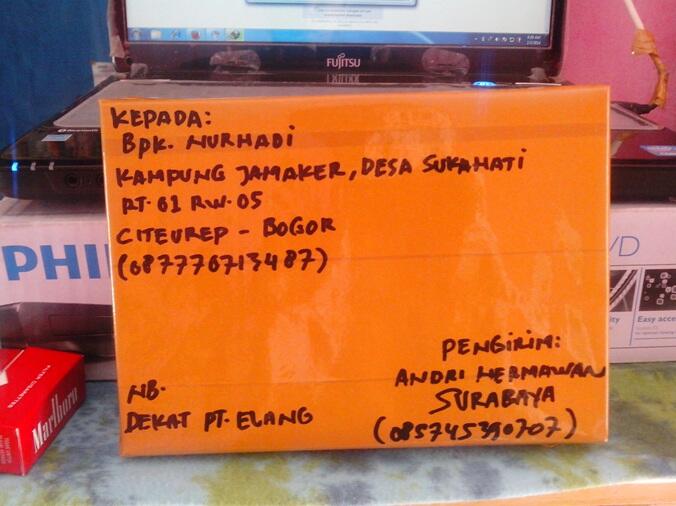 FUJITSU
KEPADA:
Bpk. NURHADI
KAMPUNG JAMAKER, DESA SUKAHATI
RT. 01 RW. 05
CITEUREP - BOGOR
(087770713487)
PHI
VD
Easy acce
PENGIRIM:
ANDRI HERMAWAN
SURABAYA
(085745390707)
NB.
DEKAT PT. ELANG
Marlboro